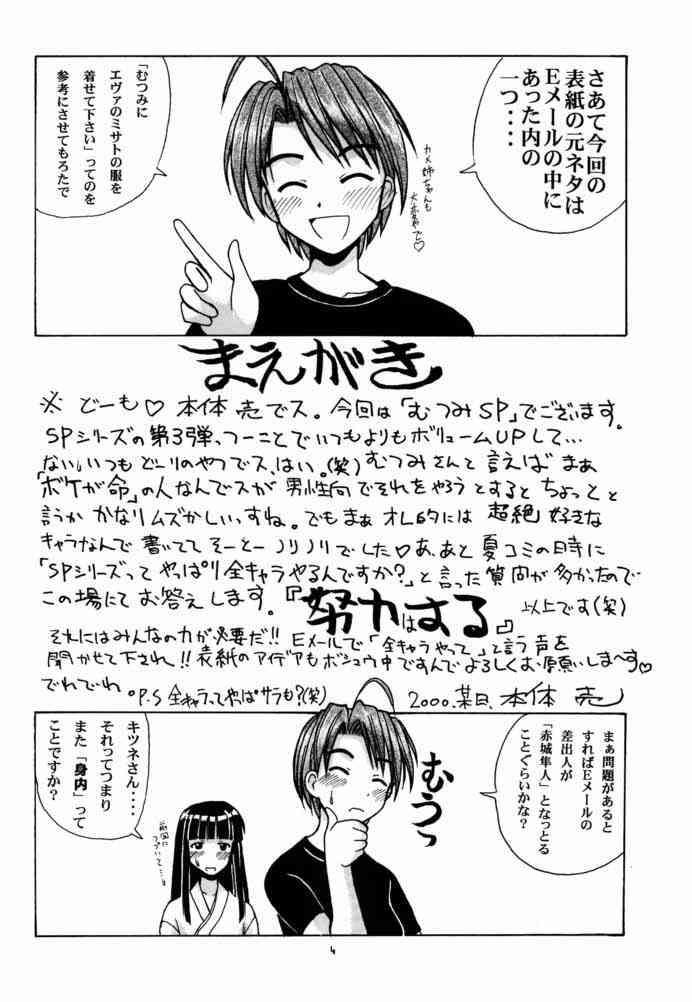 さあて今回の
表紙の元ネタは
Eメールの中に
あった内の
一つ・・・
カメ姉ちゃんも
大変やで♡
「むつみに
エヴァのミサトの服を
着せて下さい」ってのを
参考にさせてもろたで
まえがき
※どーも♡本体売でス。今回は「むつみSP」でございます。
SPシリーズの第3弾、つーことでいつもよりもボリュームUPして…
ない。いつもどーりのやつでス、はい。(笑)むつみさんと言えばまあ
「ボケが命」の人なんでスが男性向でそれをやろうとするとちょっとと
言うかかなりムズかしいっすね。でもまぁオレ的には超絶好きな
キャラなんで書いててそーとーノリノリでした♡あ、あと夏コミの時に
「SPシリーズってやっぱり全キャラやるんですか?」と言った質問が多かったので
この場にてお答えします。『努力はする』以上です(笑)
それにはみんなの力が必要だ!!Eメールで「全キャラやって」と言う声を
聞かせて下され!!表紙のアイデアもボシュウ中ですんでよろしくお願いしま〜す♡
でわでわ。P.S全キャラってやっぱサラも?(笑) 2000.某日、本体 売
まぁ問題があると
すればEメールの
差出人が
「赤城隼人」となっとる
ことぐらいかな?
むうっ
キツネさん・・・・
それってつまり
また「身内」って
ことですか?
前回に
つづいて…
4